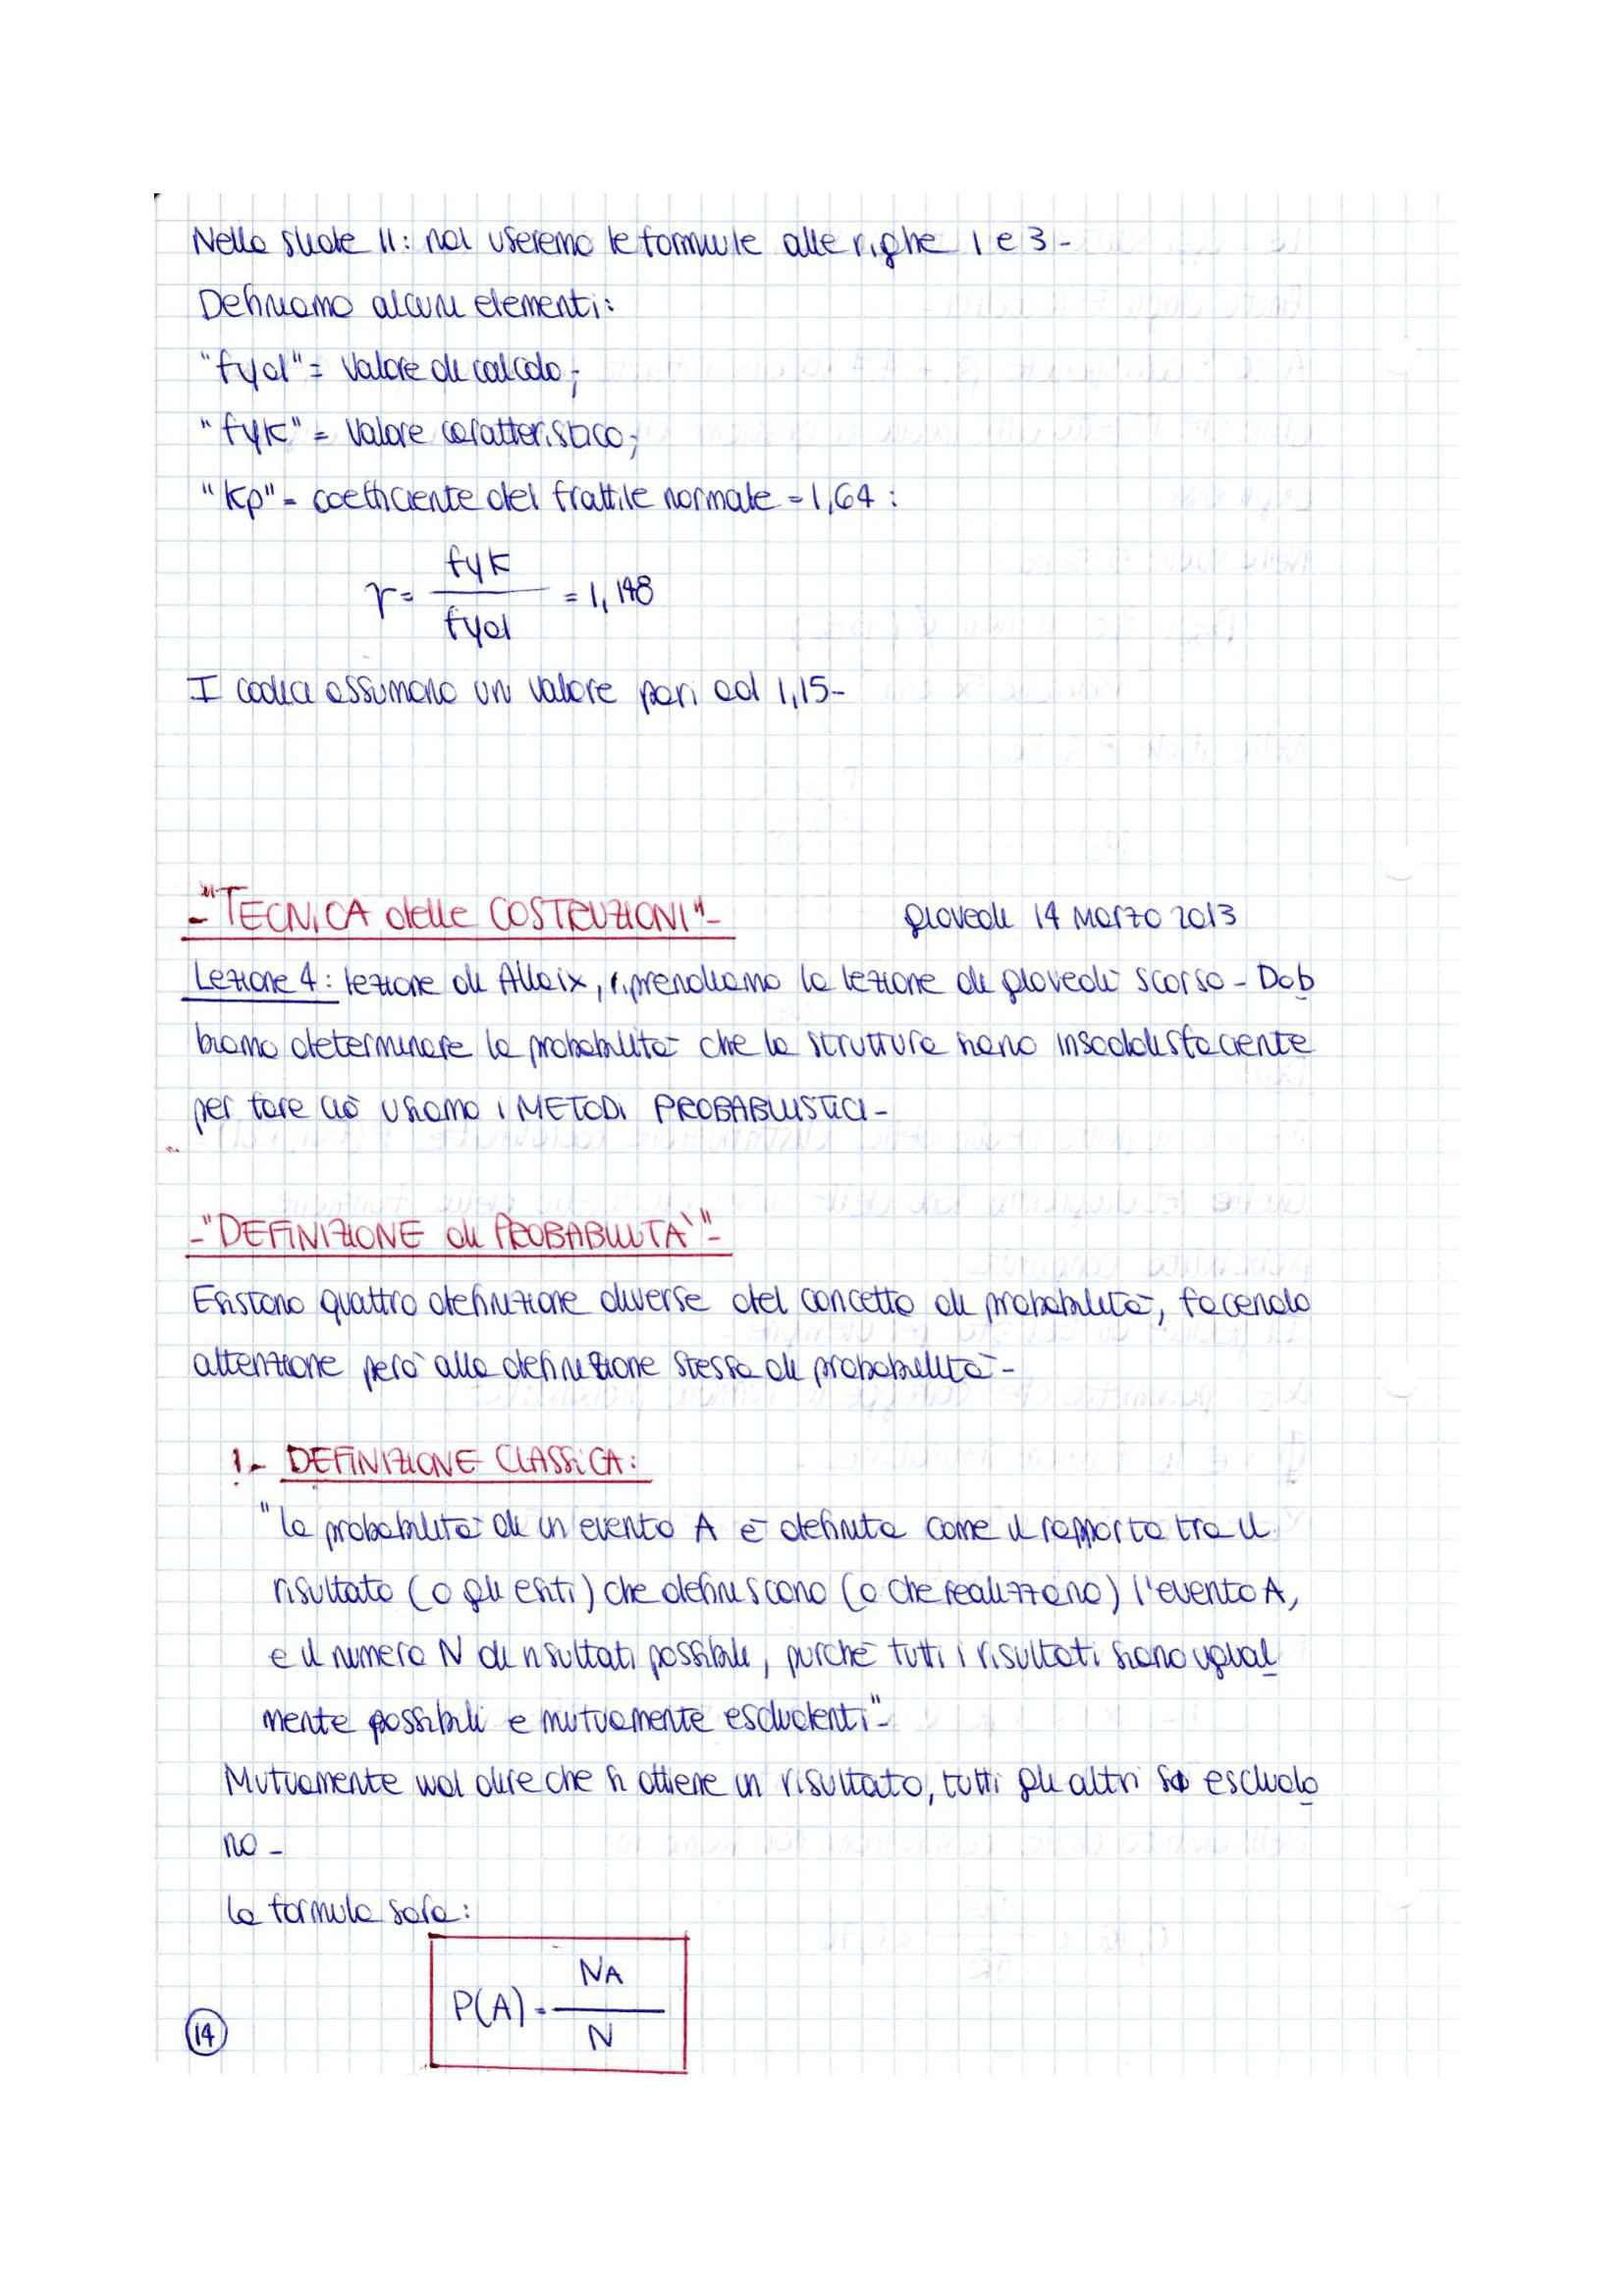 Nella slide 11: noi useremo le formule alle righe 1 e 3-
Definiamo alcuni elementi:
"fyd" = valore di calcolo;
"fyk" = valore caratteristico;
"Kp" = coefficiente del frattile normale = 1,64:
γ = fyk / fyd = 1,148
I codici assumono un valore pari ad 1,15-
-"TECNICA delle COSTRUZIONI"- giovedì 14 Marzo 2013
Lezione 4: lezione di Allaix, riprendiamo la lezione di giovedì scorso - Dob
biamo determinare la probabilità che la struttura siano insoddisfacente
per fare ciò usiamo i METODI PROBABILISTICI-
-"DEFINIZIONE di PROBABILITÀ"-
Esistono quattro definizione diverse del concetto di probabilità, facendo
attenzione però alla definizione stessa di probabilità-
1- DEFINIZIONE CLASSICA:
"la probabilità di un evento A è definita come il rapporto tra il
risultato (o gli esiti) che definiscono (o che realizzano) l'evento A,
e il numero N di risultati possibili, purché tutti i risultati siano ugual
mente possibili e mutuamente escludenti"-
Mutuamente vuol dire che si ottiene un risultato, tutti gli altri si escludo
no-
la formula sarà:
P(A) = NA / N
14